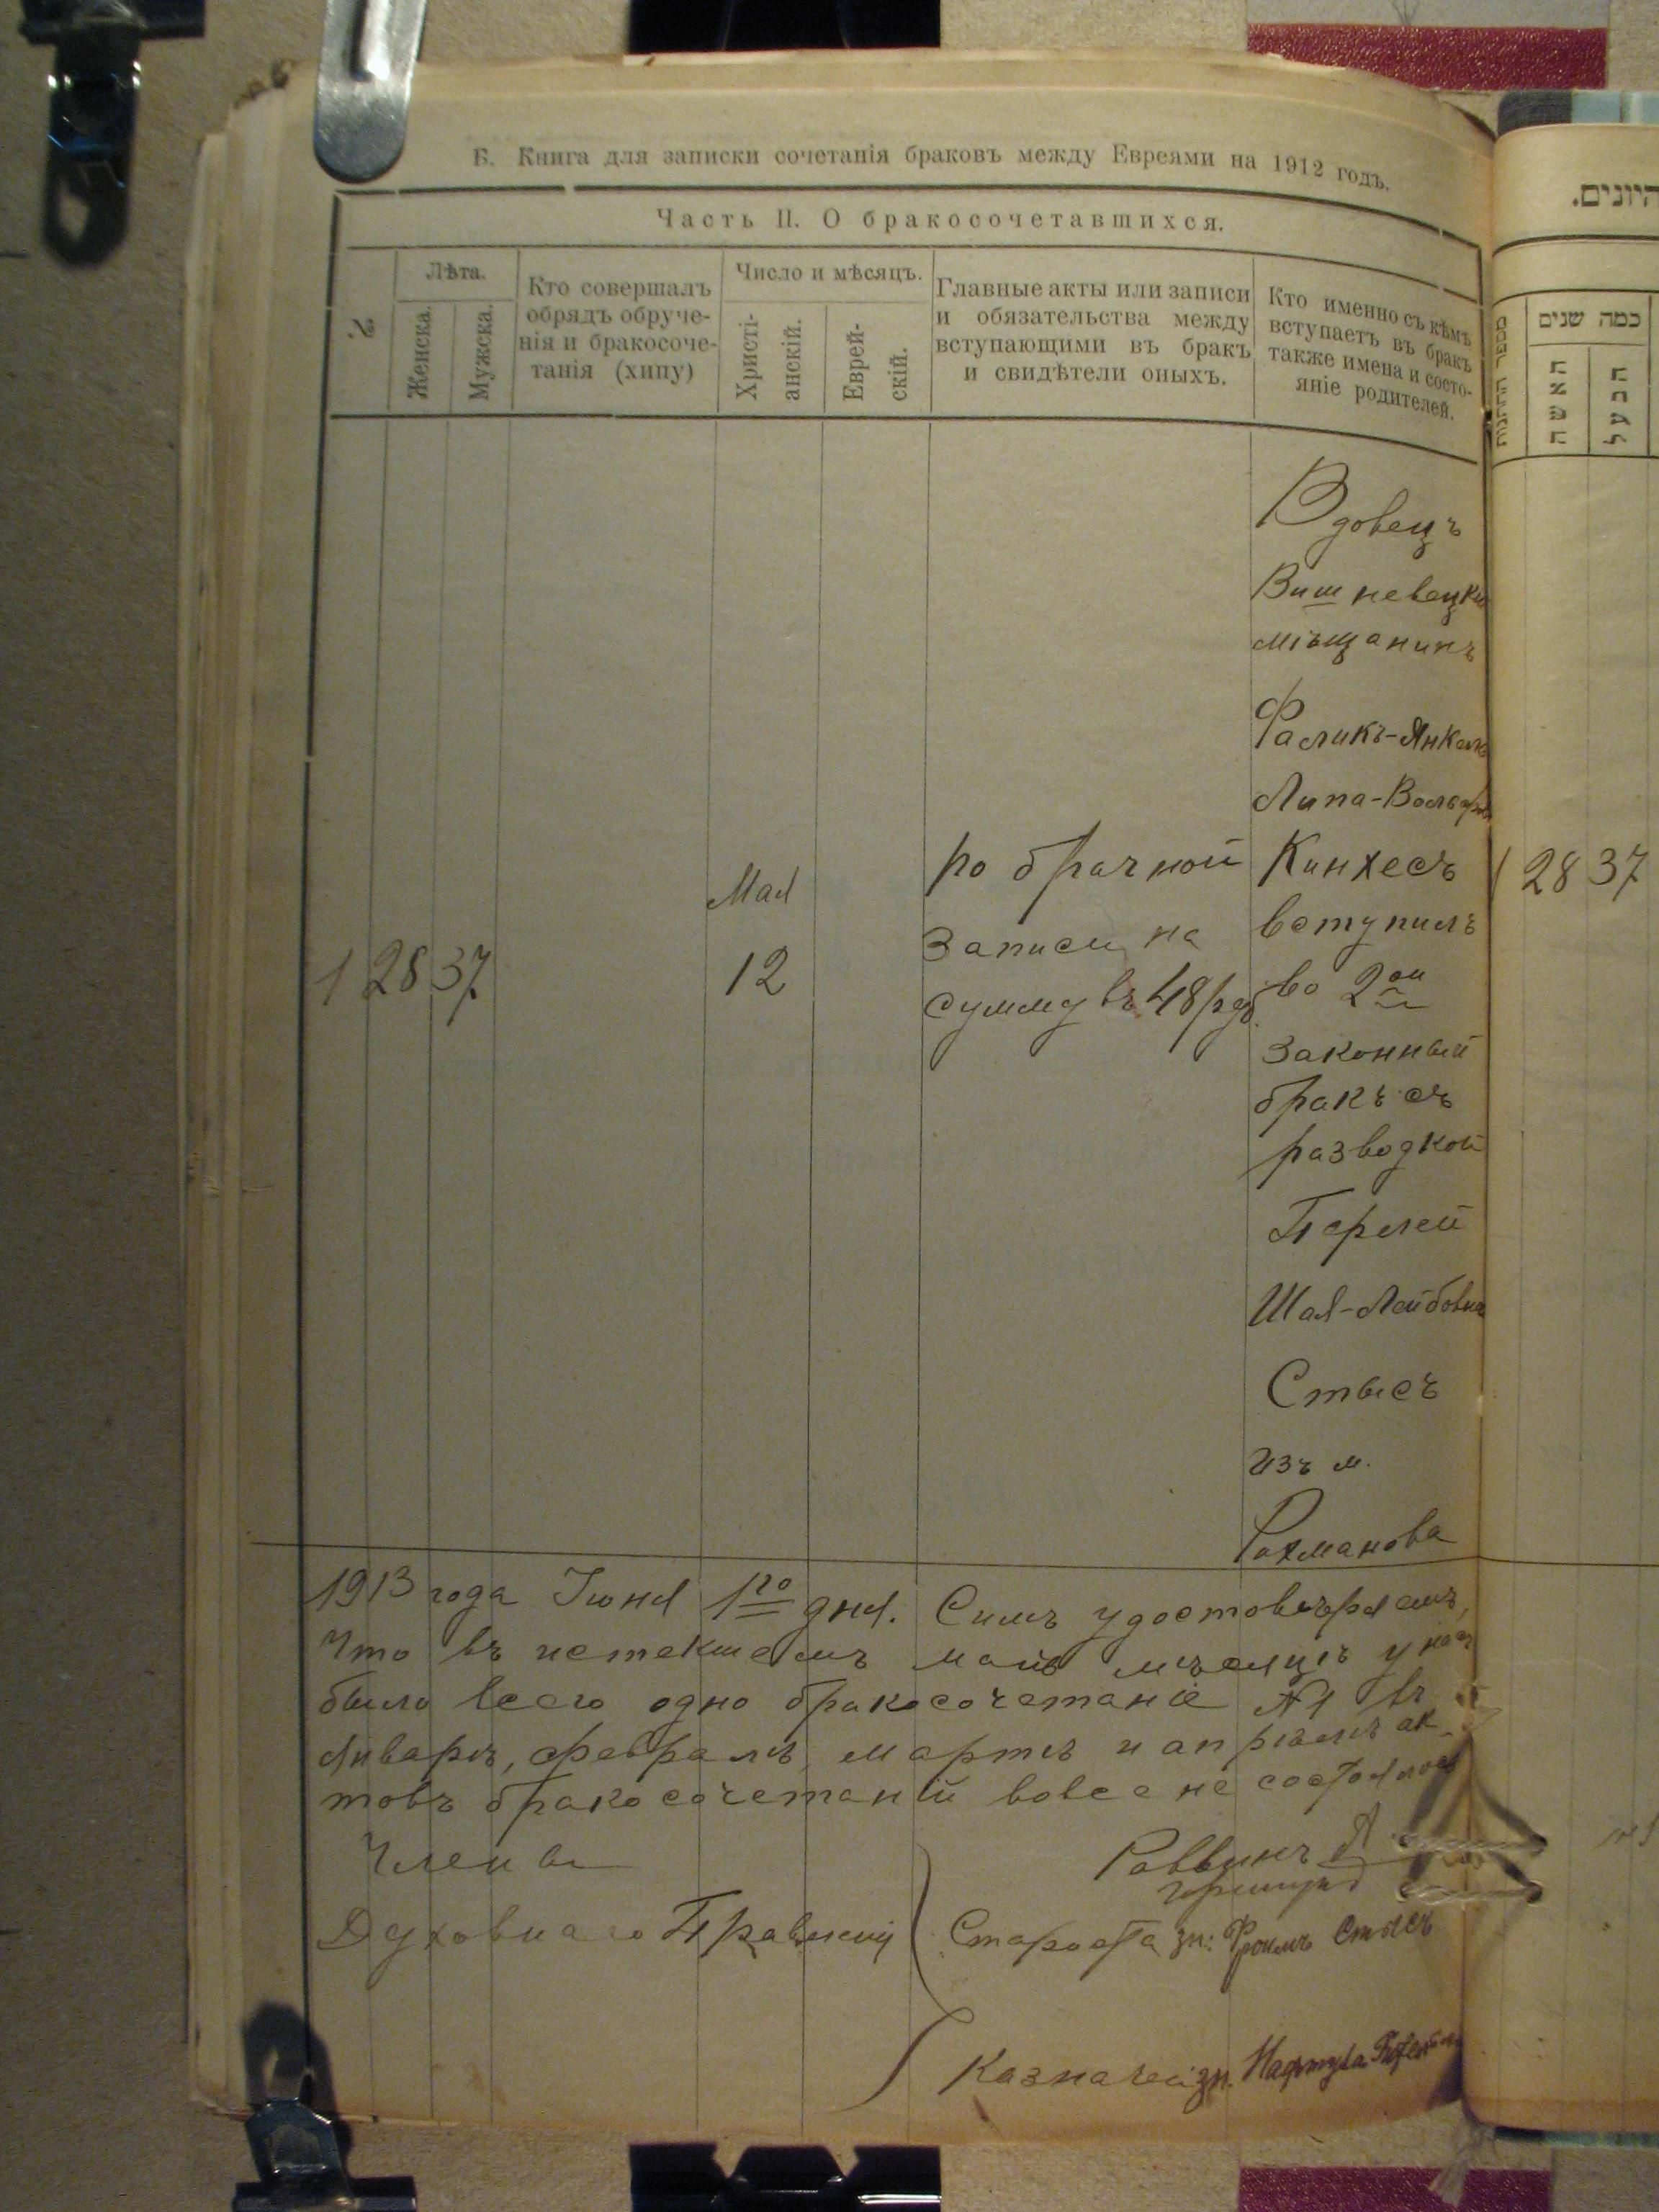 Б. Книга для записки сочетанія браковъ между Евреями на 1912 годъ.
Часть II. О бракосочетавшихся.
№
Лѣта.
Женска.
Мужска.
Кто совершалъ
обрядъ обруче-
нія и бракосоче-
танія (хипу)
Число и мѣсяцъ.
Христі-
анскій.
Еврей-
скій.
Главные акты или записи
и обязательства между
вступающими въ бракъ
и свидѣтели оныхъ.
Кто именно съ кѣмъ
вступаетъ въ бракъ
также имена и состо-
яніе родителей.
1 28 37
Мая
12
ро брачной
записи на
сумму въ 48 руб.
Вдовецъ
Вишневецкій
мѣщанинъ
Фаликъ-Янкель
Липа-Вольфов
Кинхесъ
вступилъ
во 2ой
законный
бракъ съ
разводкой
Перлей
Шая-Лейбовна
Стысъ
изъ м.
Рахманова
1913 года Іюня 1го дня. Симъ удостовѣряемъ,
что въ истекшемъ маѣ мѣсяцѣ у насъ
было всего одно бракосочетаніе №1 въ
Январѣ, февралѣ, мартѣ и апрѣлѣ ак-
товъ бракосочетаній вовсе не состоялось
Члены
Духовнаго Правленія
Раввинъ
Староста зн: Фроимъ Стысъ
Казначей зн. Нафтула
היונים.
מספר החתנות
כמה שנים
האשה
הבעל
1 28 37